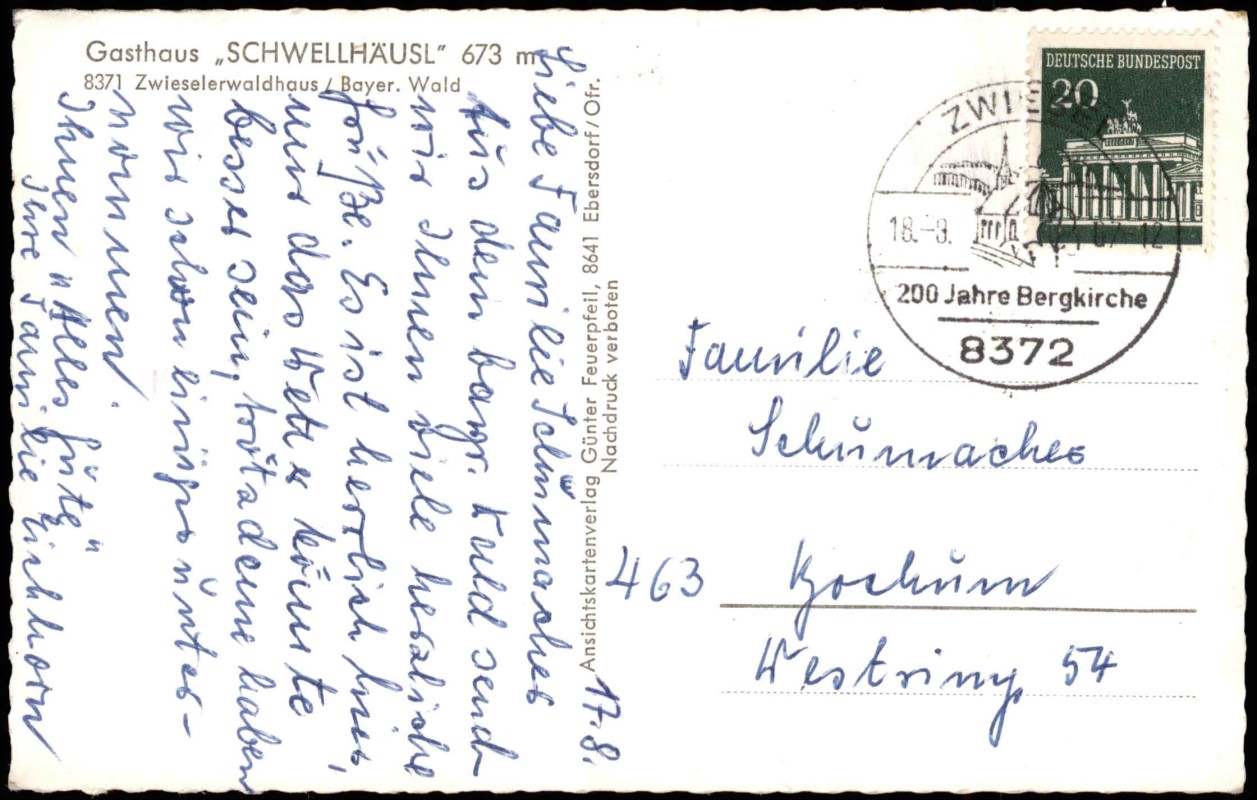 Gasthaus „SCHWELLHÄUSL" 673 m
8371 Zwieselerwaldhaus / Bayer. Wald
17.8.
Liebe Familie Schumacher
Aus dem bayr. Wald send
wir Ihnen viele herzliche
Grüße. Es ist herrlich hier,
nur das Wetter könnte
besser sein, trotzdem haben
wir schon einiges unter-
nommen.
Ihnen "Alles Gute"
Ihre Familie Eichhorn
Ansichtskartenverlag Günter Feuerpfeil, 8641 Ebersdorf/Ofr.
Nachdruck verboten
DEUTSCHE BUNDESPOST
20
ZWIESEL
18.-8.
67-12
200 Jahre Bergkirche
8372
Familie
Schumacher
463 Bochum
Westring 54